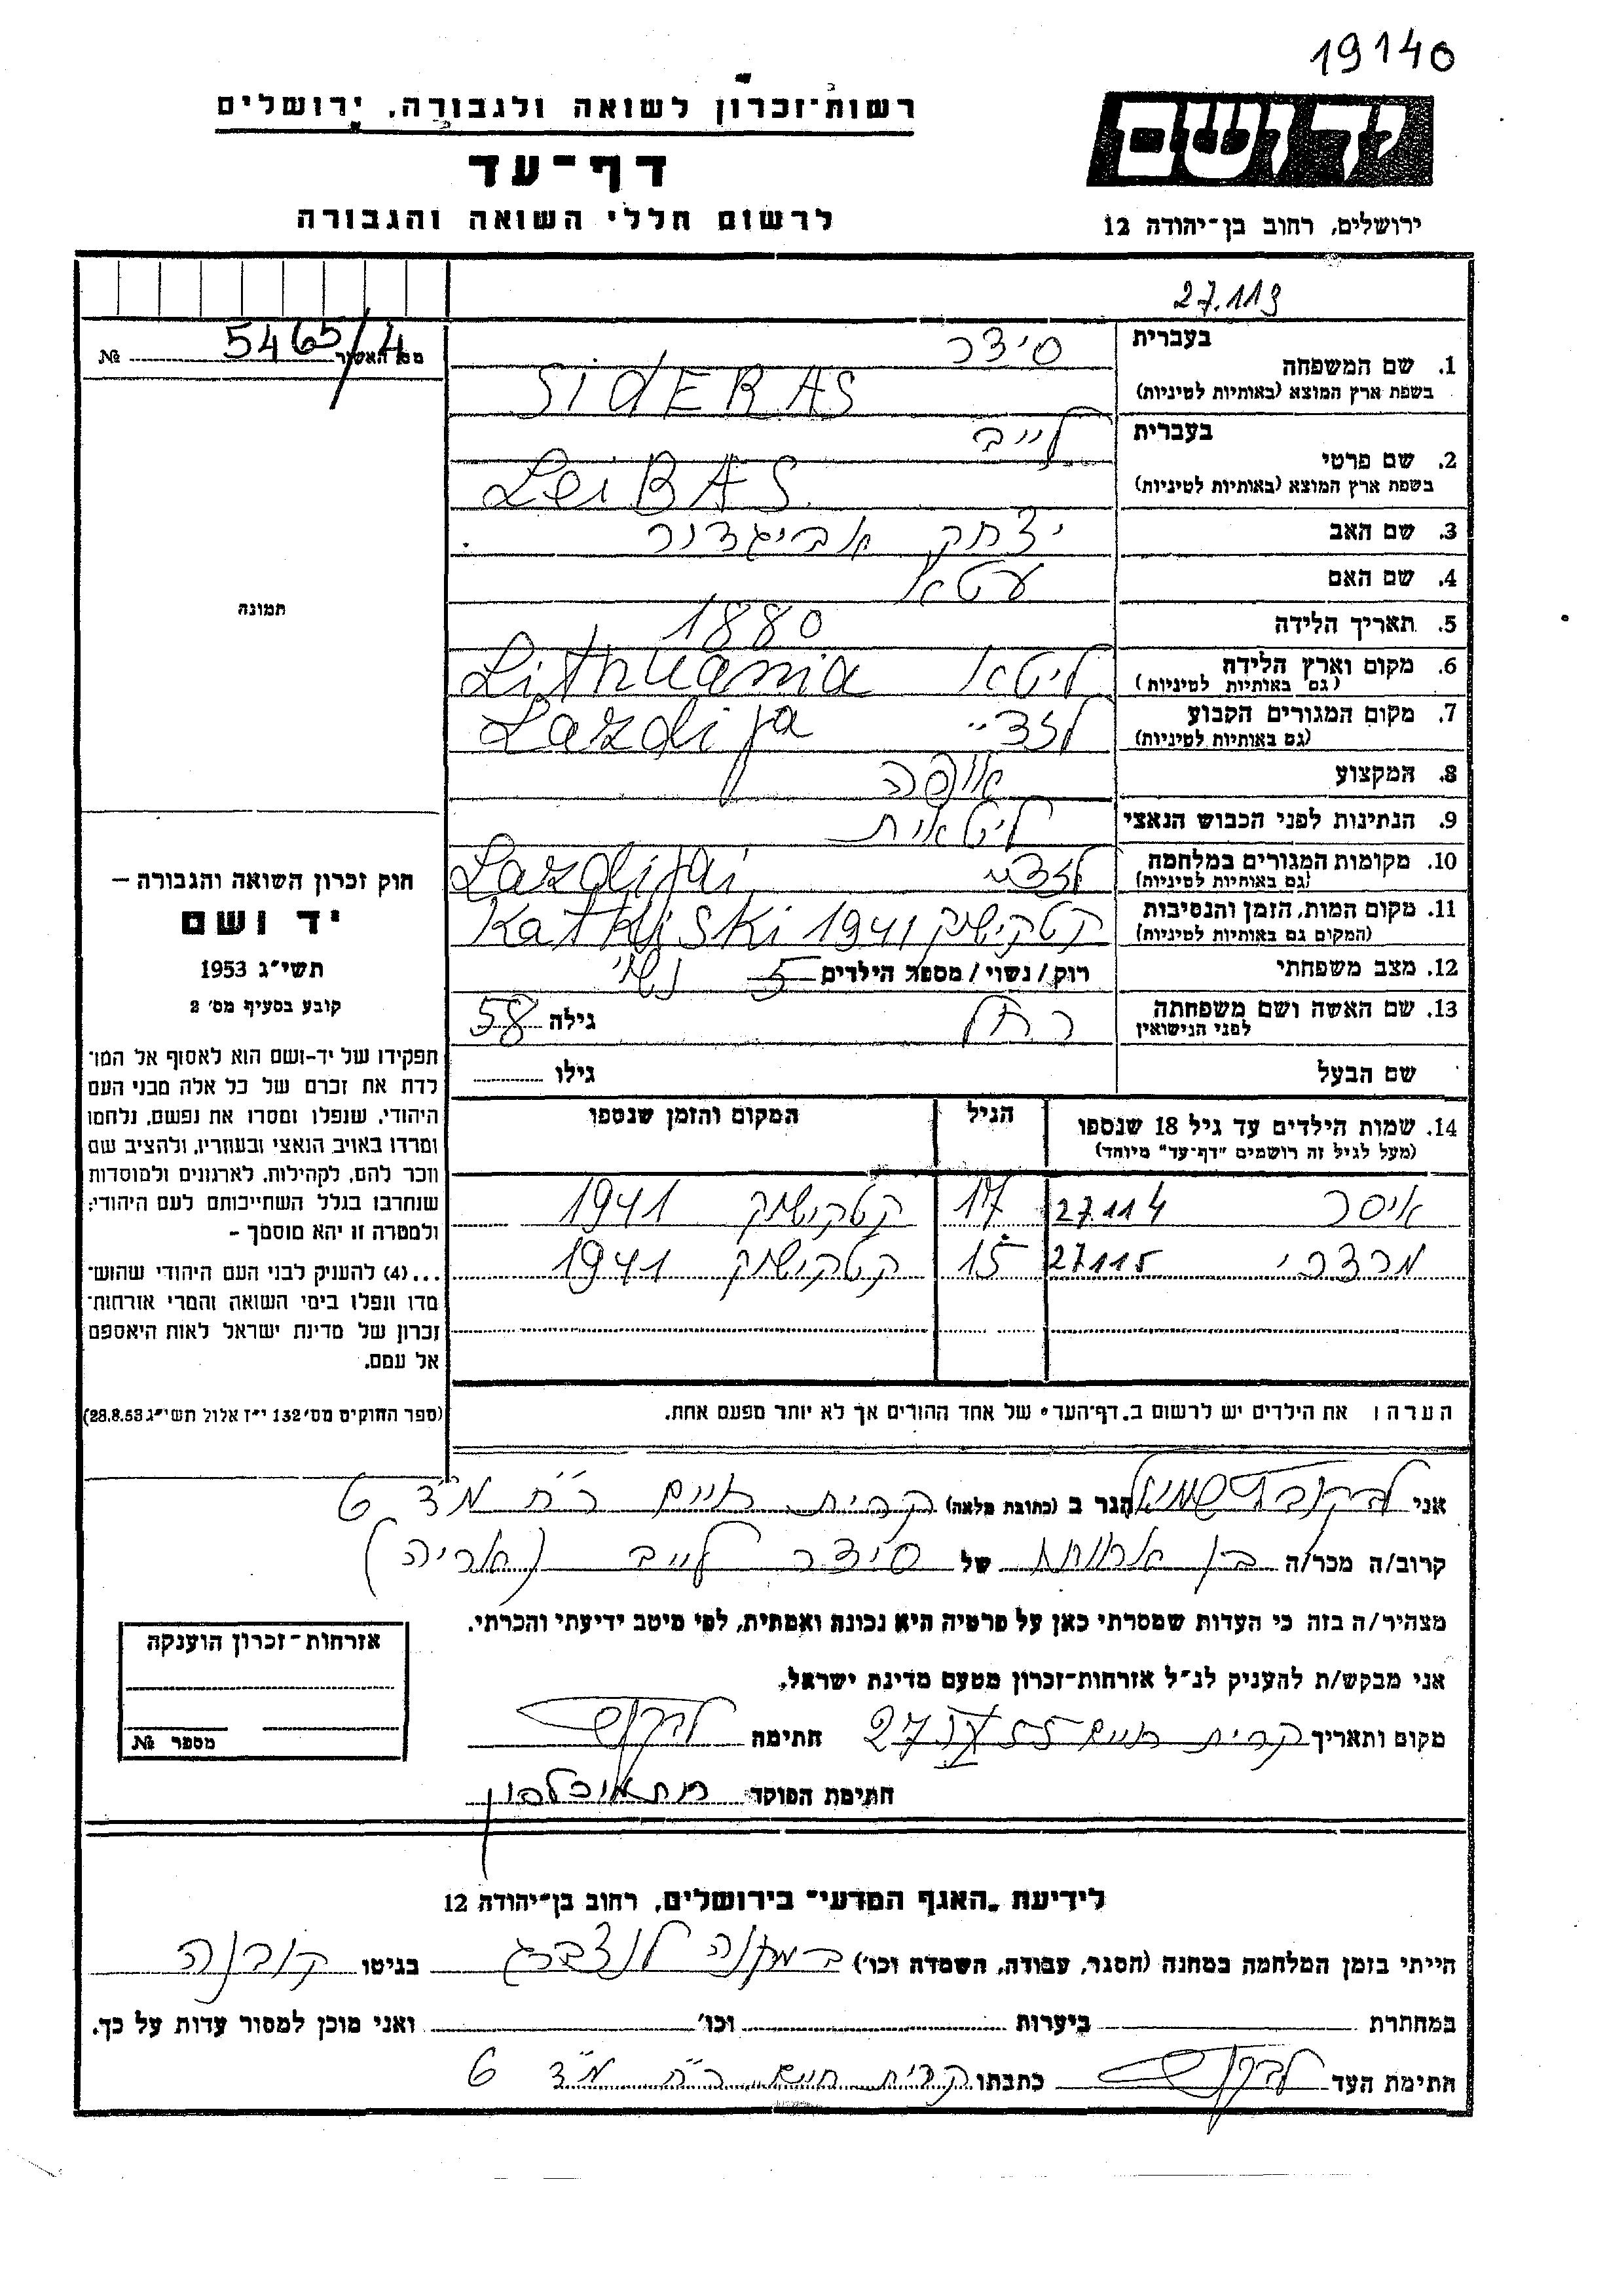 19140
יד ושם
ירושלים, רחוב בן-יהודה 12
רשות-זכרון לשואה ולגבורה, ירושלים
דף-עד
לרשום חללי השואה והגבורה
27.113
מס׳ האשור 5465/4 №
תמונה
חוק זכרון השואה והגבורה –
יד ושם
תשי״ג 1953
קובע בסעיף מס׳ 2
תפקידו של יד-ושם הוא לאסוף אל המו־
לדת את זכרם של כל אלה מבני העם
היהודי, שנפלו ומסרו את נפשם, נלחמו
ומרדו באויב הנאצי ובעוזריו, ולהציב שם
וזכר להם, לקהילות, לארגונים ולמוסדות
שנחרבו בגלל השתייכותם לעם היהודי;
ולמטרה זו יהא מוסמך –
...(4) להעניק לבני העם היהודי שהוש־
מדו ונפלו בימי השואה והמרי אזרחות־
זכרון של מדינת ישראל לאות היאספם
אל עמם.
(ספר החוקים מס׳ 132 י״ז אלול תשי״ג 28.8.53)
בעברית סידר
1. שם המשפחה
בשפת ארץ המוצא (באותיות לטיניות) SidERAS
בעברית לייב
2. שם פרטי
בשפת ארץ המוצא (באותיות לטיניות) LeiBAS
3. שם האב יצחק אביגדור
4. שם האם עטא
5. תאריך הלידה 1880
6. מקום וארץ הלידה ליטא Lithuania
(גם באותיות לטיניות)
7. מקום המגורים הקבוע לזדיי Lazdija
(גם באותיות לטיניות)
8. המקצוע אופה
9. הנתינות לפני הכבוש הנאצי ליטאית
10. מקומות המגורים במלחמה לזדיי Lazdijai
(גם באותיות לטיניות)
11. מקום המות, הזמן והנסיבות קטקישוק 1941 Katkiski
(המקום גם באותיות לטיניות)
12. מצב משפחתי רוק/נשוי/מספר הילדים 5 נשוי
13. שם האשה ושם משפחתה רחל גילה 58
לפני הנישואין
שם הבעל גילו
14. שמות הילדים עד גיל 18 שנספו הגיל המקום והזמן שנספו
(מעל לגיל זה רושמים "דף-עד" מיוחד)
איסר 27.114 17 קטקישוק 1941
מרדכי 27.115 15 קטקישוק 1941
הערה: את הילדים יש לרשום ב„דף-העד״ של אחד ההורים אך לא יותר מפעם אחת.
אני שמואל הגר ב (כתובת מלאה) קרית חיים ר״ח מ״ד 6
קרוב/ה מכר/ה בן אחות של סידר לייב (אריה)
מצהיר/ה בזה כי העדות שמסרתי כאן על פרטיה היא נכונה ואמתית, לפי מיטב ידיעתי והכרתי.
אני מבקש/ת להעניק לנ״ל אזרחות-זכרון מטעם מדינת ישראל.
מקום ותאריך קרית חיים 27 IX 55 חתימה
חתימת הפוקד
אזרחות-זכרון הוענקה
מספר №
לידיעת „האגף המדעי״ בירושלים, רחוב בן-יהודה 12
הייתי בזמן המלחמה במחנה (הסגר, עבודה, השמדה וכו׳) במחנה לנדסברג בגיטו קובנה
במחתרת ביערות וכו׳ ואני מוכן למסור עדות על כך.
חתימת העד כתבתו קרית חיים ר״ח מ״ד 6